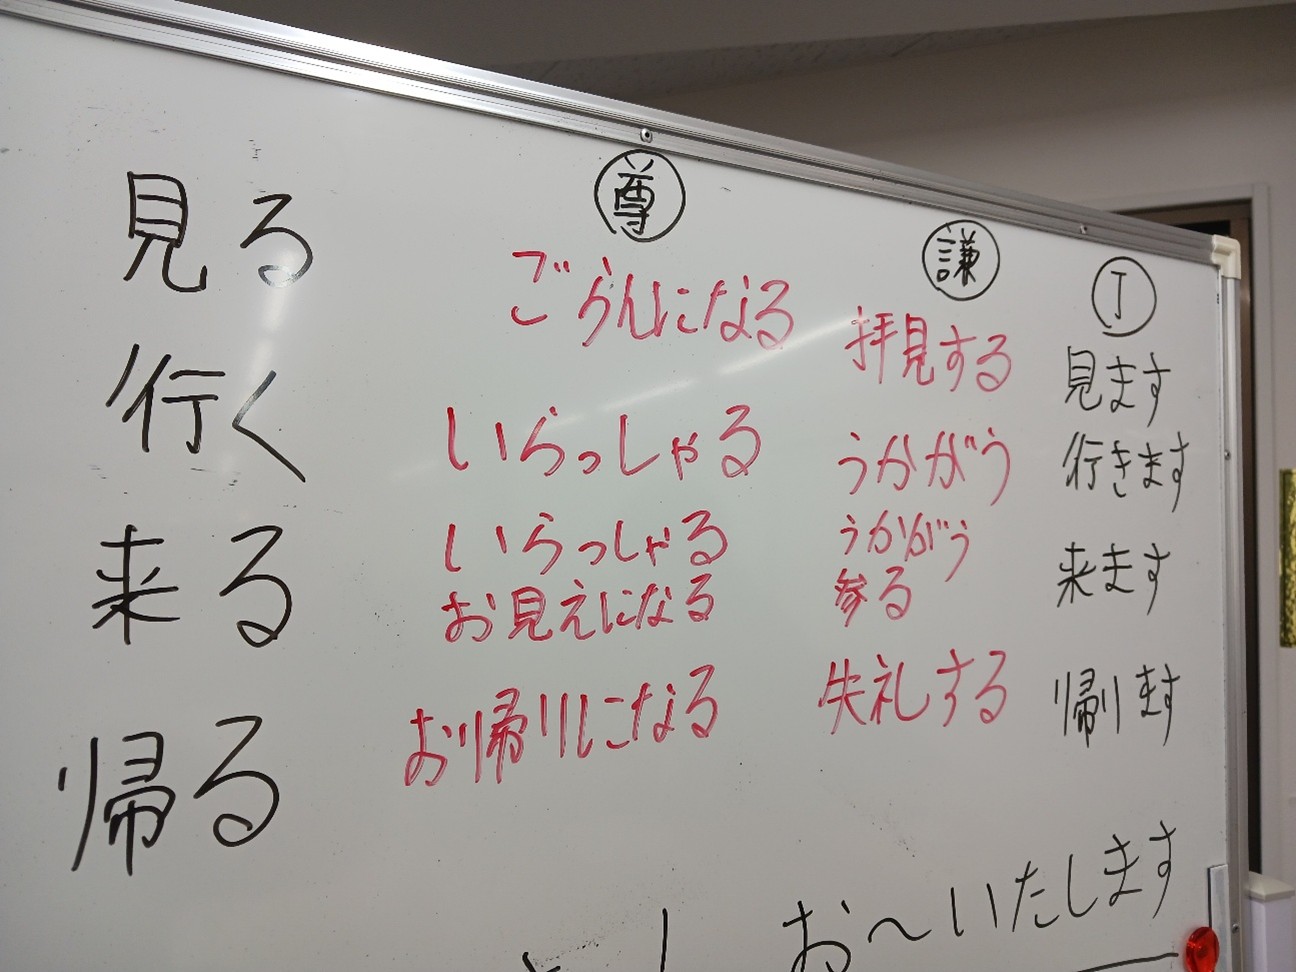 尊 謙 丁
見る ごらんになる 拝見する 見ます
行く いらっしゃる うかがう 行きます
来る いらっしゃる うかがう 来ます
お見えになる 参る
帰る お帰りになる 失礼する 帰ります
お〜いたします